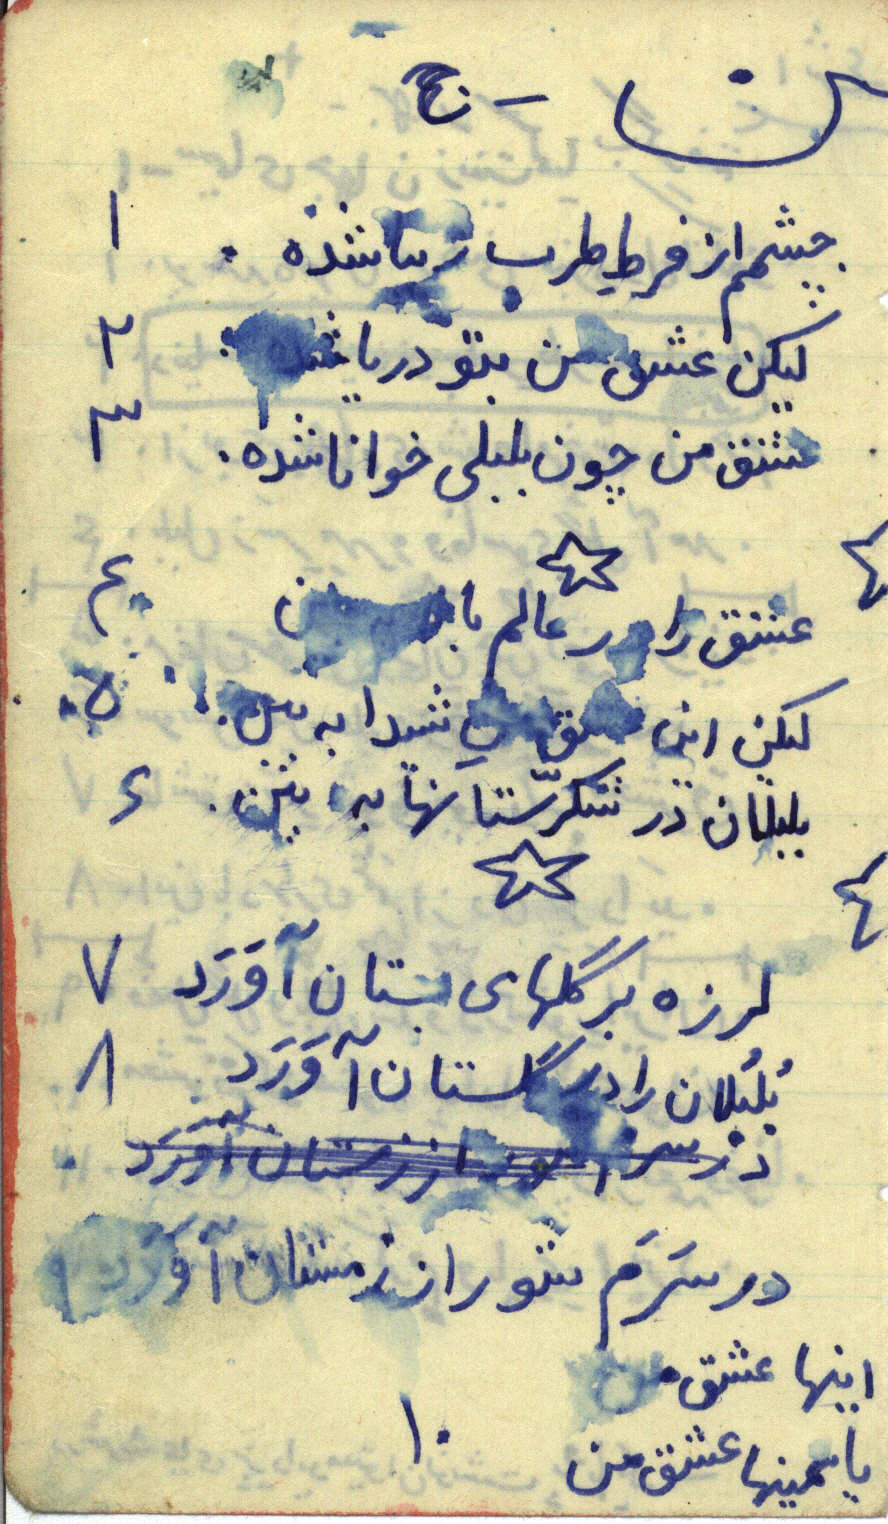 چشمم از فرطِ طرب زیبا شده . ۱
لیکن عشق من بتو دریا شده . ۲
عشق من چون بلبلی خوانا شده . ۳
عشق را در عالم با ۴
لیکن این عشق من شیدا به بین . ۵
بلبلان در شکرستانها به بین . ۶
لرزه بر گلهای بستان آوَرَد ۷
بُلبُلان را در گلستان آوَرَد ۸
در سرم از زمستان آوَرَد
در سَرَم شور از زمستان آوَرَد ۹
اینها عشق من
یاسمینها عشق من ۱۰